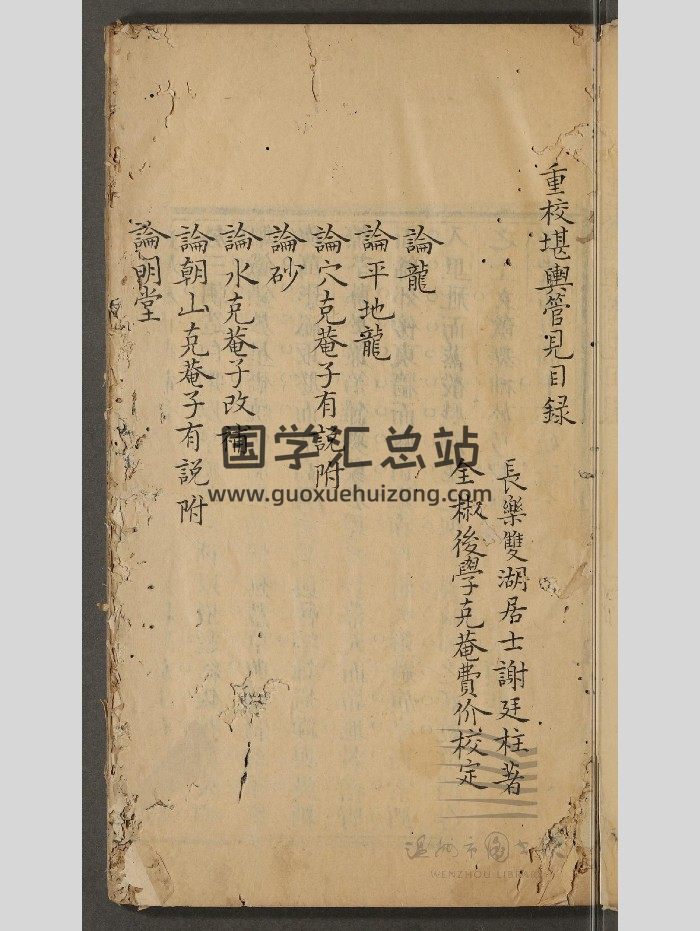 重校堪輿管見目録
長樂雙湖居士謝廷柱著
全椒後學克菴費价校定
論龍
論平地龍
論穴克菴子有説附
論砂
論水克菴子改補
論朝山克菴子有説附
論明堂
国学汇总站
www.guoxuehuizong.com
温州市图书馆
WENZHOU LIBRARY